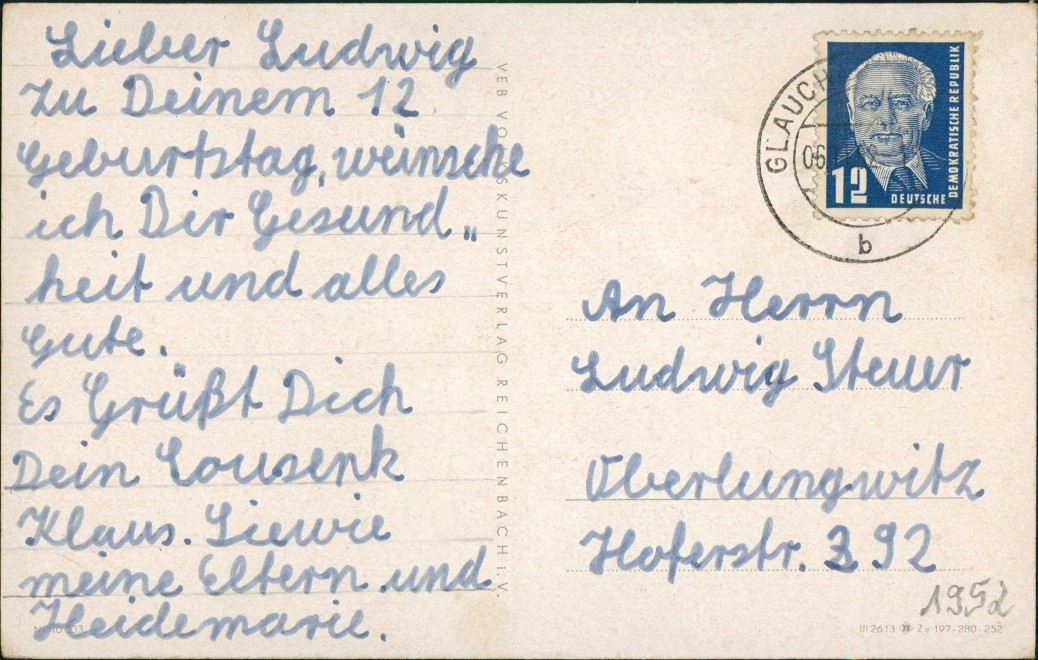 Lieber Ludwig
Zu Deinem 12
Geburtstag, wünsche
ich Dir Gesund„
heit und alles
Gute.
Es Grüßt Dich
Dein Cousenk
Klaus. Siewie
meine Eltern und
Heidemarie.
VEB VOLKSKUNSTVERLAG REICHENBACH i. V.
GLAUCH
06
b
12
DEUTSCHE
DEMOKRATISCHE REPUBLIK
An Herrn
Ludwig Steuer
Oberlungwitz
Hoferstr. 392
1952
III 26 13 Ze 197-280-252